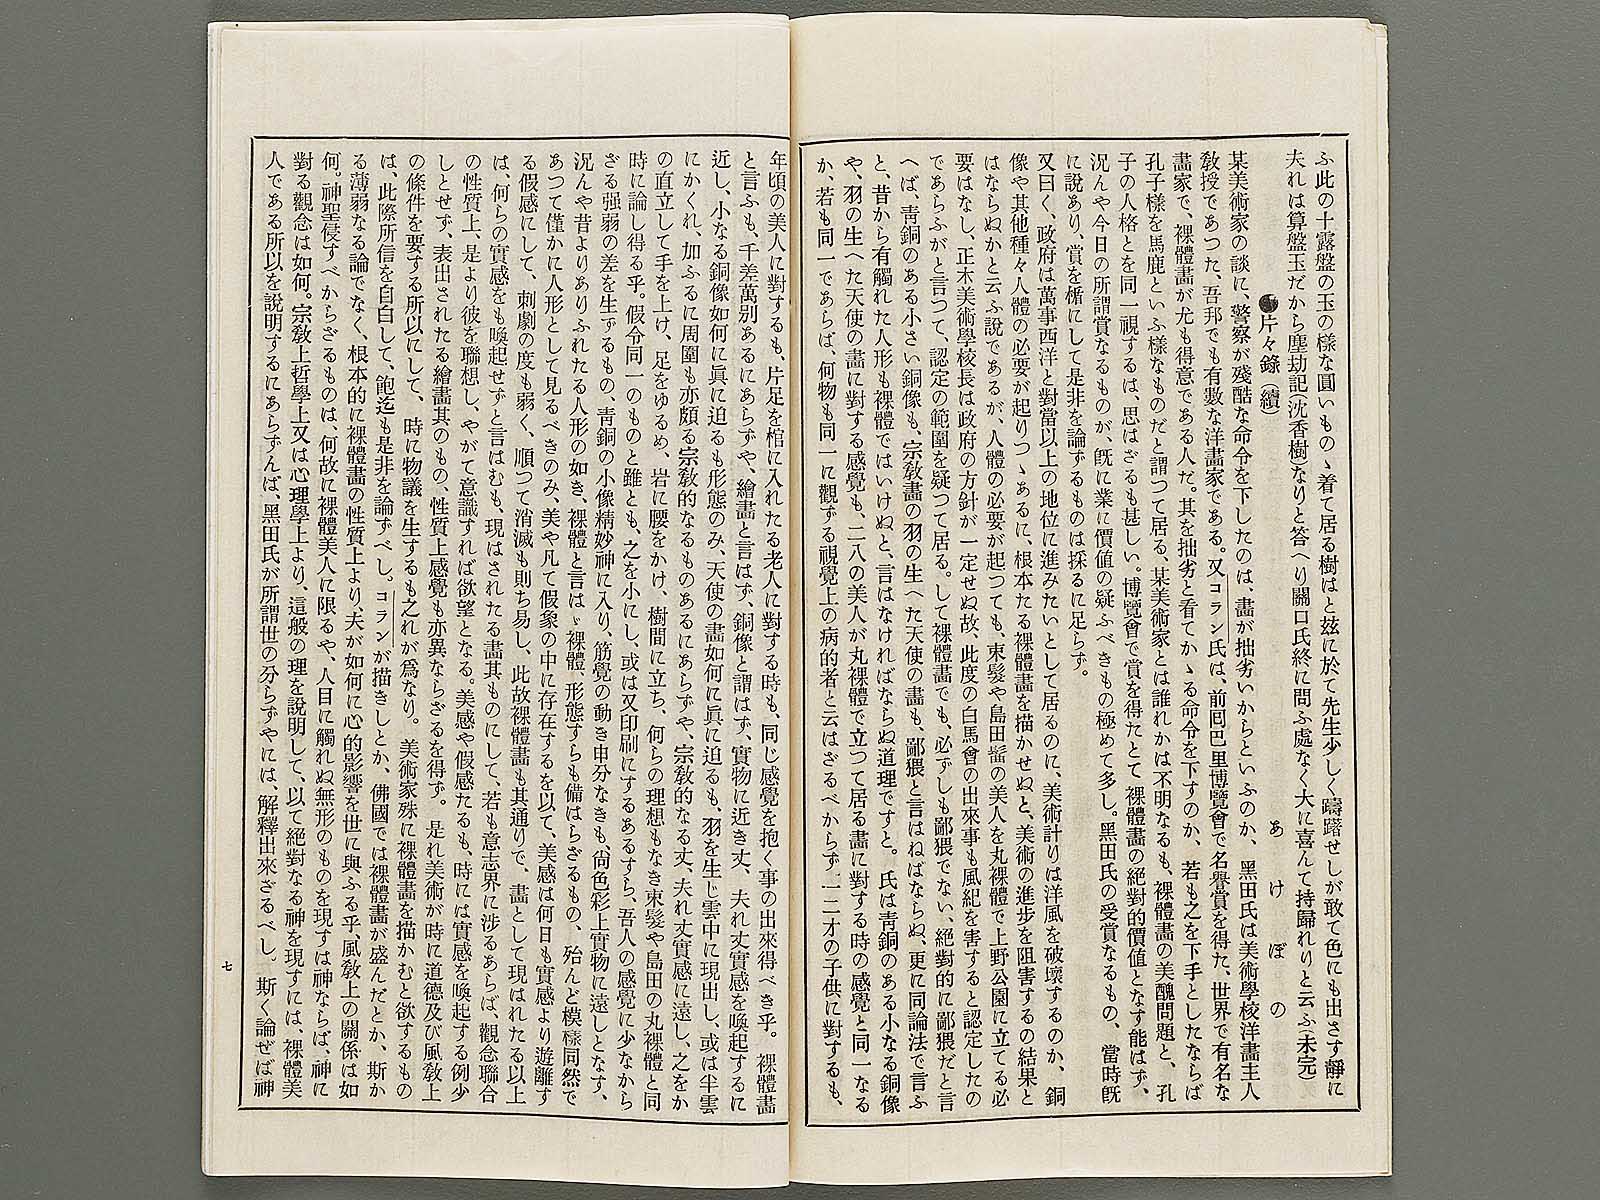 ふ此の十露盤の玉の樣な圓いものゝ着て居る樹はと玆に於て先生少しく躊躇せしが敢て色にも出さす靜に
夫れは算盤玉だから塵劫記(沈香樹なりと答へり關口氏終に問ふ處なく大に喜んて持歸れりと云ふ(未完)
片々錄(續)
あけぼの
某美術家の談に、警察が殘酷な命令を下したのは、畫が拙劣いからといふのか、黑田氏は美術學校洋畫主人
敎授であつた、吾邦でも有數な洋畫家である。又コラン氏は、前囘巴里博覽會で名譽賞を得た、世界で有名な
畫家で、裸體畫が尤も得意である人だ。其を拙劣と看てかゝる命令を下すのか、若も之を下手としたならば
孔子樣を馬鹿といふ樣なものだと謂つて居る、某美術家とは誰れかは不明なるも、裸體畫の美醜問題と、孔
子の人格とを同一視するは、思はざるも甚しい。博覽會で賞を得たとて、裸體畫の絕對的價値となす能はず、
況んや今日の所謂賞なるものが、旣に業に價値の疑ふべきもの極めて多し。黑田氏の受賞なるもの、當時旣
に說あり、賞を楯にして是非を論ずるものは採るに足らず。
又曰く、政府は萬事西洋と對當以上の地位に進みたいとして居るのに、美術計りは洋風を破壞するのか、銅
像や其他種々人體の必要が起りつゝあるに、根本たる裸體畫を描かせぬと、美術の進步を阻害するの結果と
はならぬかと云ふ說であるが、人體の必要が起つても、束髮や島田髷の美人を丸裸體で上野公園に立てる必
要はなし、正木美術學校長は政府の方針が一定せぬ故、此度の白馬會の出來事も風紀を害すると認定したの
であらふがと言つて、認定の範圍を疑つて居る。して裸體畫でも、必ずしも鄙猥でない、絕對的に鄙猥だと言
へば、靑銅のある小さい銅像も、宗敎畫の羽の生へた天使の畫も、鄙猥と言はねばならぬ、更に同論法で言ふ
と、昔から有觸れた人形も裸體ではいけぬと、言はなければならぬ道理ですと。氏は靑銅のある小なる銅像
や、羽の生へた天使の畫に對する感覺も、二八の美人が丸裸體で立つて居る畫に對する時の感覺と同一なる
か、若も同一であらば、何物も同一に觀ずる視覺上の病的者と云はざるべからず、一二才の子供に對するも、
年頃の美人に對するも、片足を棺に入れたる老人に對する時も、同じ感覺を抱く事の出來得べき乎。裸體畫
と言ふも、千差萬別あるにあらずや、繪畫と言はず、銅像と謂はず、實物に近き丈、夫れ丈實感を喚起するに
近し、小なる銅像如何に眞に迫るも形態のみ、天使の畫如何に眞に迫るも、羽を生じ雲中に現出し、或は半雲
にかくれ、加ふるに周圍も亦頗る宗敎的なるものあるにあらずや、宗敎的なる丈、夫れ丈實感に遠し、之をか
の直立して手を上け、足をゆるめ、岩に腰をかけ、樹間に立ち、何らの理想もなき束髮や島田の丸裸體と同
時に論し得る乎。假令同一のものと雖とも、之を小にし、或は又印刷にするあるすら、吾人の感覺に少なから
ざる强弱の差を生ずるもの、靑銅の小像精妙神に入り、筋覺の動き申分なきも、尙色彩上實物に遠しとなす、
況んや昔よりありふれたる人形の如き、裸體と言はゞ裸體、形態すらも備はらざるもの、殆んど模樣同然で
あつて僅かに人形として見るべきのみ、美や凡て假象の中に存在するを以て、美感は何日も實感より遊離す
る假感にして、刺劇の度も弱く、順つて消滅も則ち易し、此故裸體畫も其通りで、畫として現はれたる以上
は、何らの實感をも喚起せずと言はむも、現はされたる畫其ものにして、若も意志界に涉るあらば、觀念聯合
の性質上、是より彼を聯想し、やがて意識すれば欲望となる。美感や假感たるも、時には實感を喚起する例少
しとせず、表出されたる繪畫其のもの、性質上感覺も亦異ならざるを得ず。是れ美術が時に道德及び風敎上
の條件を要する所以にして、時に物議を生するも之れが爲なり。美術家殊に裸體畫を描かむと欲するもの
は、此際所信を自白して、飽迄も是非を論ずべし。コランが描きしとか、佛國では裸體畫が盛んだとか、斯か
る薄弱なる論でなく、根本的に裸體畫の性質上より、夫が如何に心的影響を世に與ふる乎、風敎上の關係は如
何。神聖侵すべからざるものは、何故に裸體美人に限るや、人目に觸れぬ無形のものを現すは神ならば、神に
對る觀念は如何。宗敎上哲學上又は心理學上より、這般の理を說明して、以て絕對なる神を現すには、裸體美
人である所以を說明するにあらずんば、黑田氏が所謂世の分らずやには、解釋出來ざるべし。斯く論ぜば神
七